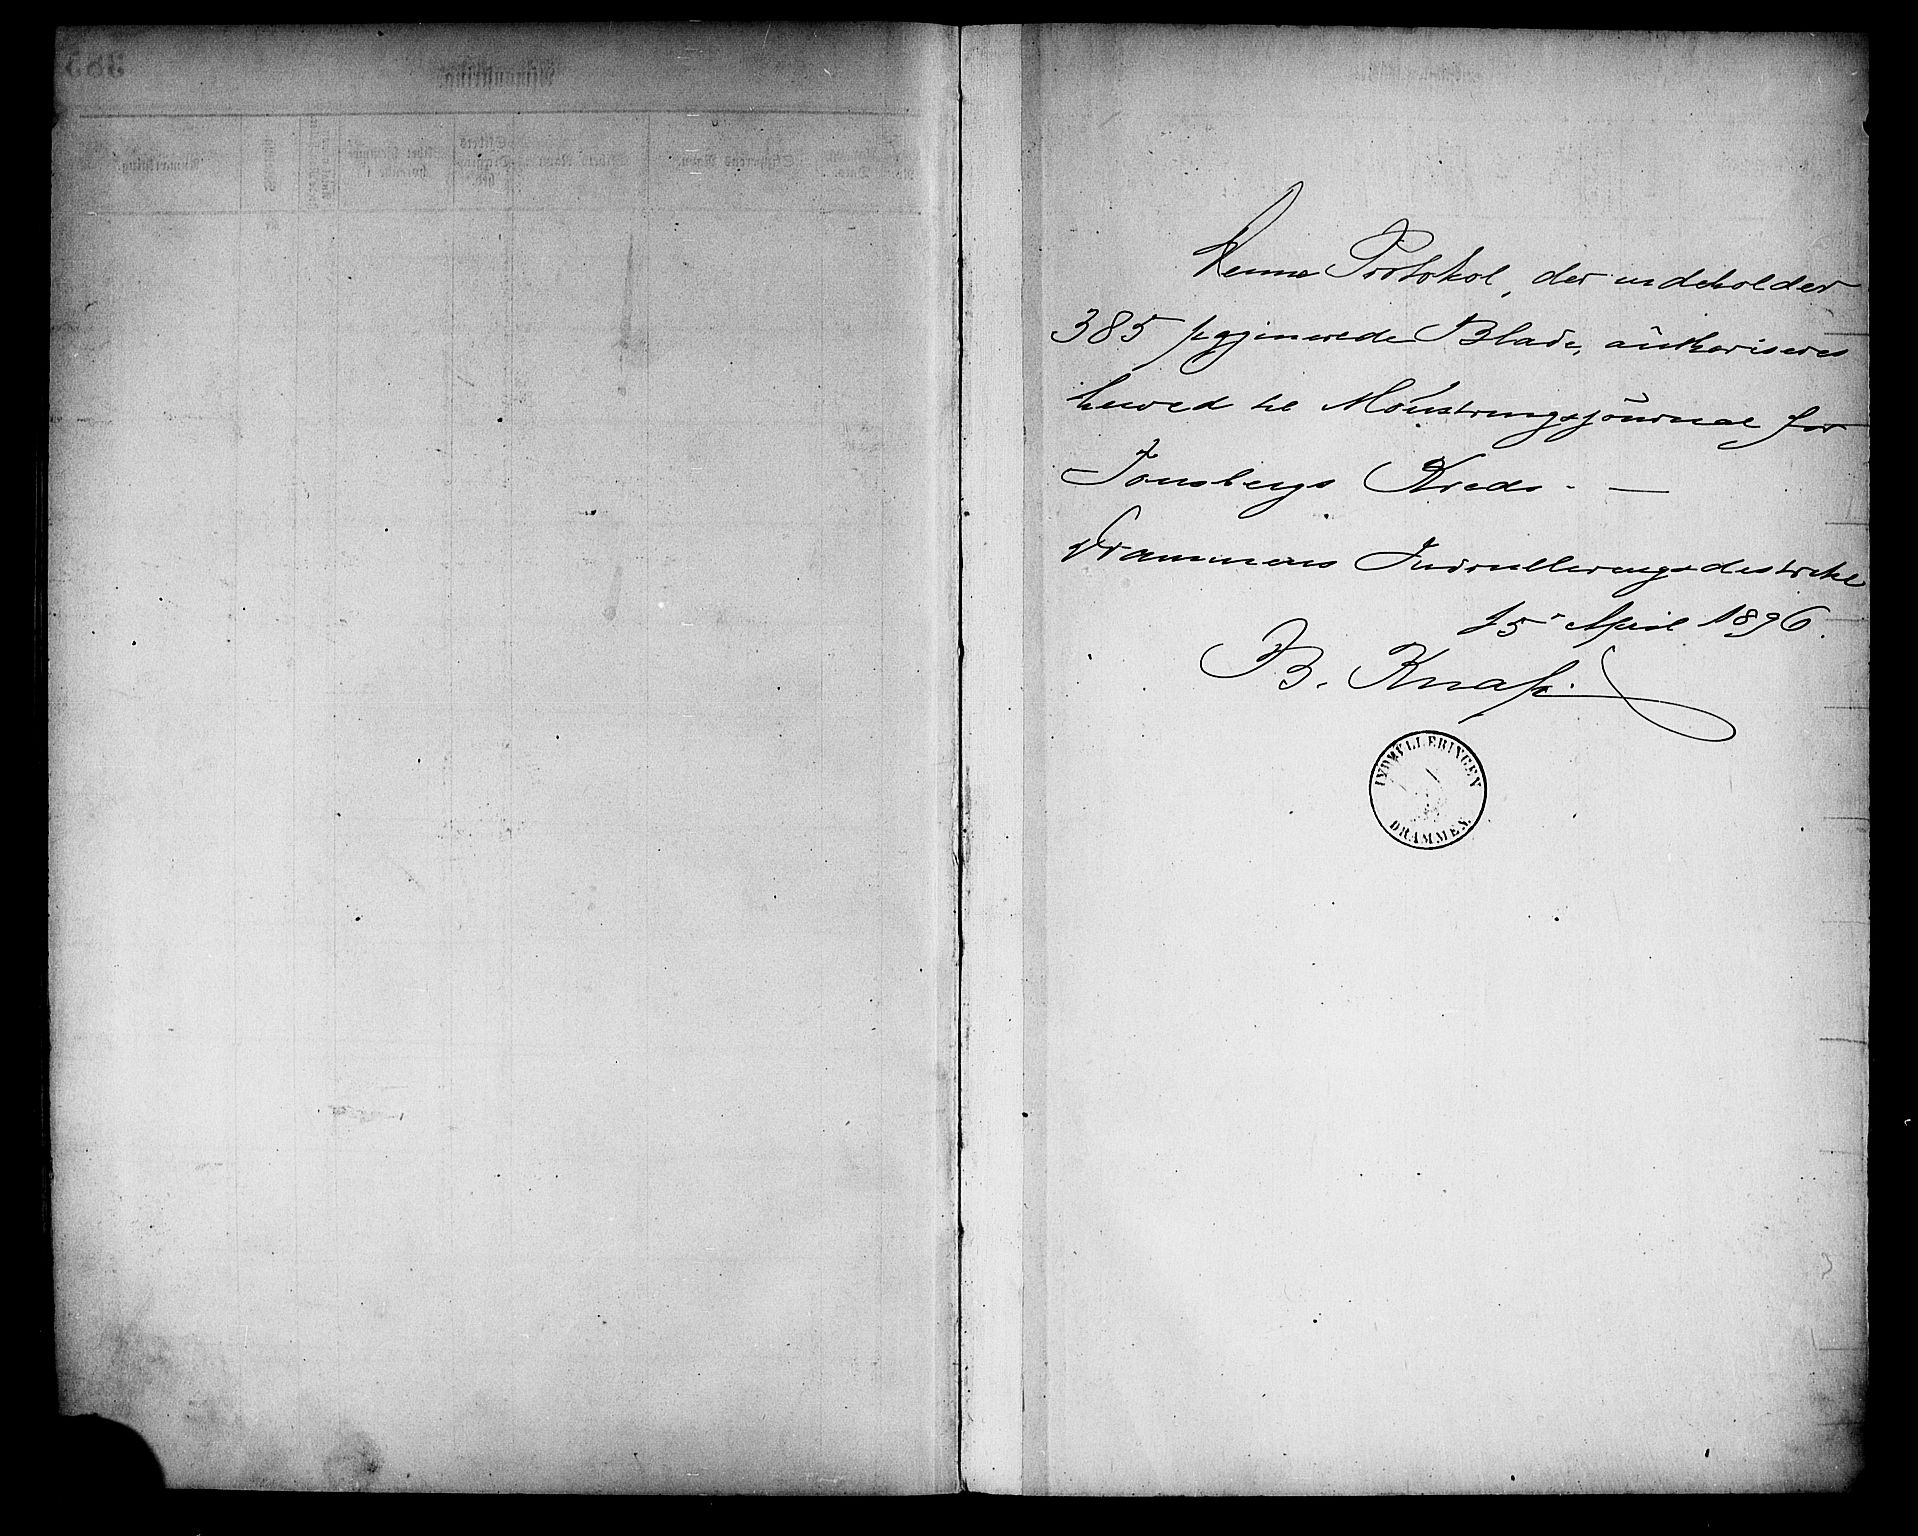 Denne Protokol, der indeholder
385 pagjinerede Blade, authoriseres
herved til Mønstringsjournal for
Tønsbergs Kreds. —
Drammens Indrulleringsdistrikt
15 April 1896.
B. Knap.
INDRULLERINGEN
DRAMMEN.